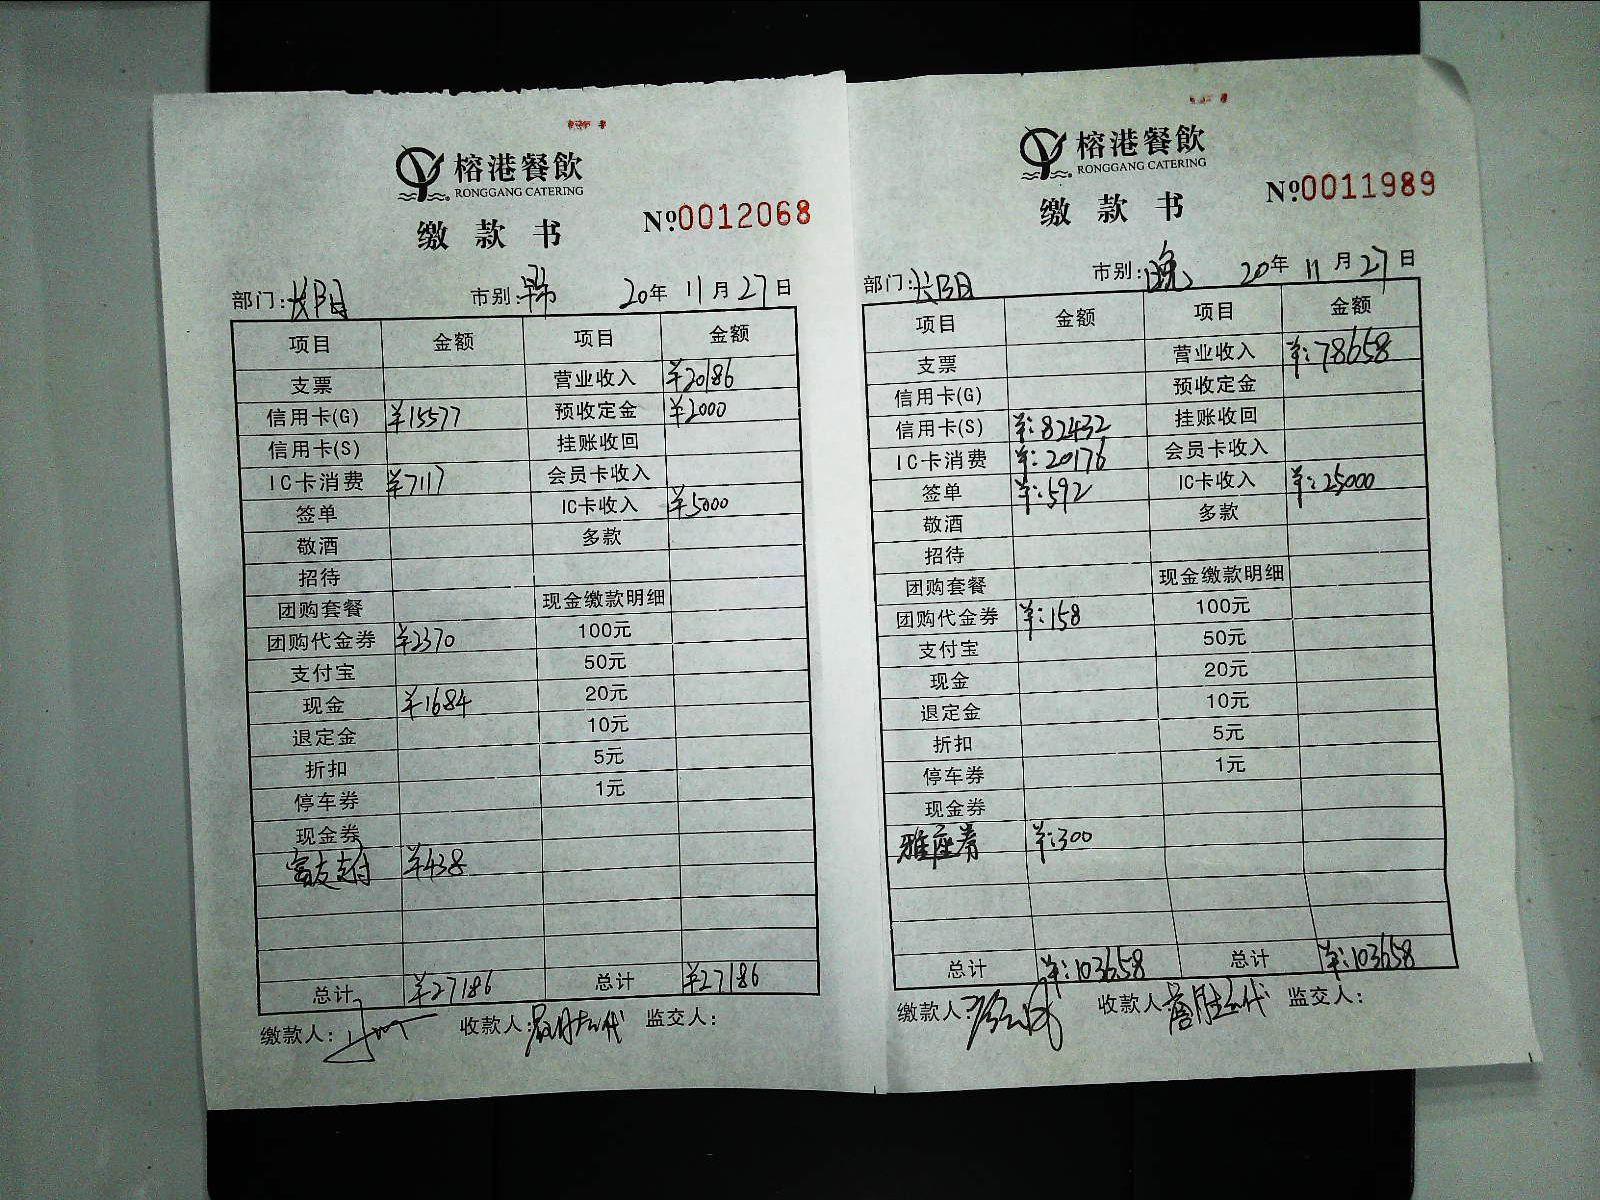 榕港餐飲
RONGGANG CATERING
缴款书
№0012068
部门:长阳 市别: 20年11月27日
项目 金额 项目 金额
支票 营业收入 ¥20186
信用卡(G) ¥15577 预收定金 ¥2000
信用卡(S) 挂账收回
IC卡消费 ¥7117 会员卡收入
签单 IC卡收入 ¥5000
敬酒 多款
招待
团购套餐 现金缴款明细
团购代金券 ¥2370 100元
支付宝 50元
现金 ¥1684 20元
退定金 10元
折扣 5元
停车券 1元
现金券
富友支付 ¥438
总计 ¥27186 总计 ¥27186
缴款人: 收款人: 监交人:
榕港餐飲
RONGGANG CATERING
缴款书
№0011989
部门:长阳 市别:晚 20年11月27日
项目 金额 项目 金额
支票 营业收入 ¥:78658
信用卡(G) 预收定金
信用卡(S) ¥:82432 挂账收回
IC卡消费 ¥:20176 会员卡收入
签单 ¥:592 IC卡收入 ¥:25000
敬酒 多款
招待
团购套餐 现金缴款明细
团购代金券 ¥:158 100元
支付宝 50元
现金 20元
退定金 10元
折扣 5元
停车券 1元
现金券
雅座券 ¥:300
总计 ¥:103658 总计 ¥:103658
缴款人: 收款人: 监交人: